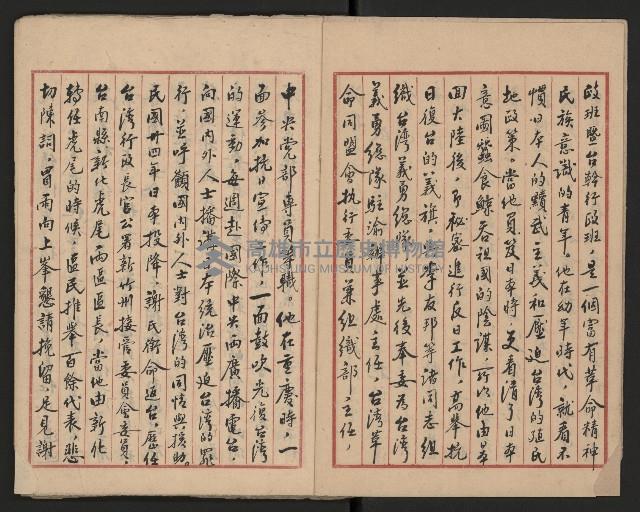 政班暨台幹行政班，是一個富有革命精神
民族意識的青年。他在幼年時代，就看不
慣日本人的黷武主義和壓迫台灣的殖民
地政策。當他負笈日本時，更看清了日本
意圖蠶食鯨吞祖國的陰謀，所以他由日本
回大陸後，即秘密進行反日工作，高舉抗
日復台的義旗，與李友邦等諸同志組
織台灣義勇總隊，並先後奉委為台灣
義勇總隊駐渝辦事處主任，台灣革
命同盟會執行委員兼組織部主任，
中央党部專員等職。他在重慶時，一
面參加抗日宣傳工作，一面鼓吹光復台灣
的運動，每週赴國際中央兩廣播電台，
向國內外人士播講日本統治壓迫台灣的罪
行，並呼籲國內外人士對台灣的同情與援助。
民國卅四年日本投降，謝氏銜命返台，歷任
台灣行政長官公署新竹州接管委員會委員，
台南縣新化虎尾兩區區長，當他由新化
轉任虎尾的時候，區民推舉百餘代表，悲
切陳詞，冒雨向上峯懇請挽留，足見謝
高雄市立歷史博物館
KAOHSIUNG MUSEUM OF HISTORY